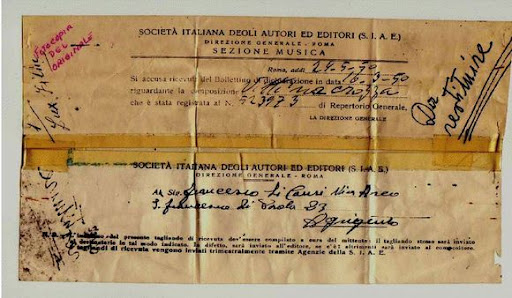 FOTOCOPIA
DEL
ORIGINALE
SOCIETÀ ITALIANA DEGLI AUTORI ED EDITORI (S. I. A. E.)
DIREZIONE GENERALE - ROMA
SEZIONE MUSICA
Roma, addì 24.5.50
Si accusa ricevuta del Bollettino di dichiarazione in data 16.3-50
riguardante la composizione: Vitti na crozza
che è stata registrata al N. 513973 di Repertorio Generale.
LA DIREZIONE GENERALE
Da
restituire
SOCIETÀ ITALIANA DEGLI AUTORI ED EDITORI (S. I. A. E.)
DIREZIONE GENERALE - ROMA
Al Sig. Francesco Li Causi Via Arco
S. Francesco di Paola 23
Agrigento
del presente tagliando di ricevuta dev'essere compilato a cura del mittente: il tagliando stesso sarà inviato
al destinatario in tal modo indicato. In difetto, sarà inviato all'editore, se c'è; altrimenti sarà inviato al compositore.
I tagliandi di ricevuta vengono inviati trimestralmente tramite Agenzie della S. I. A. E.